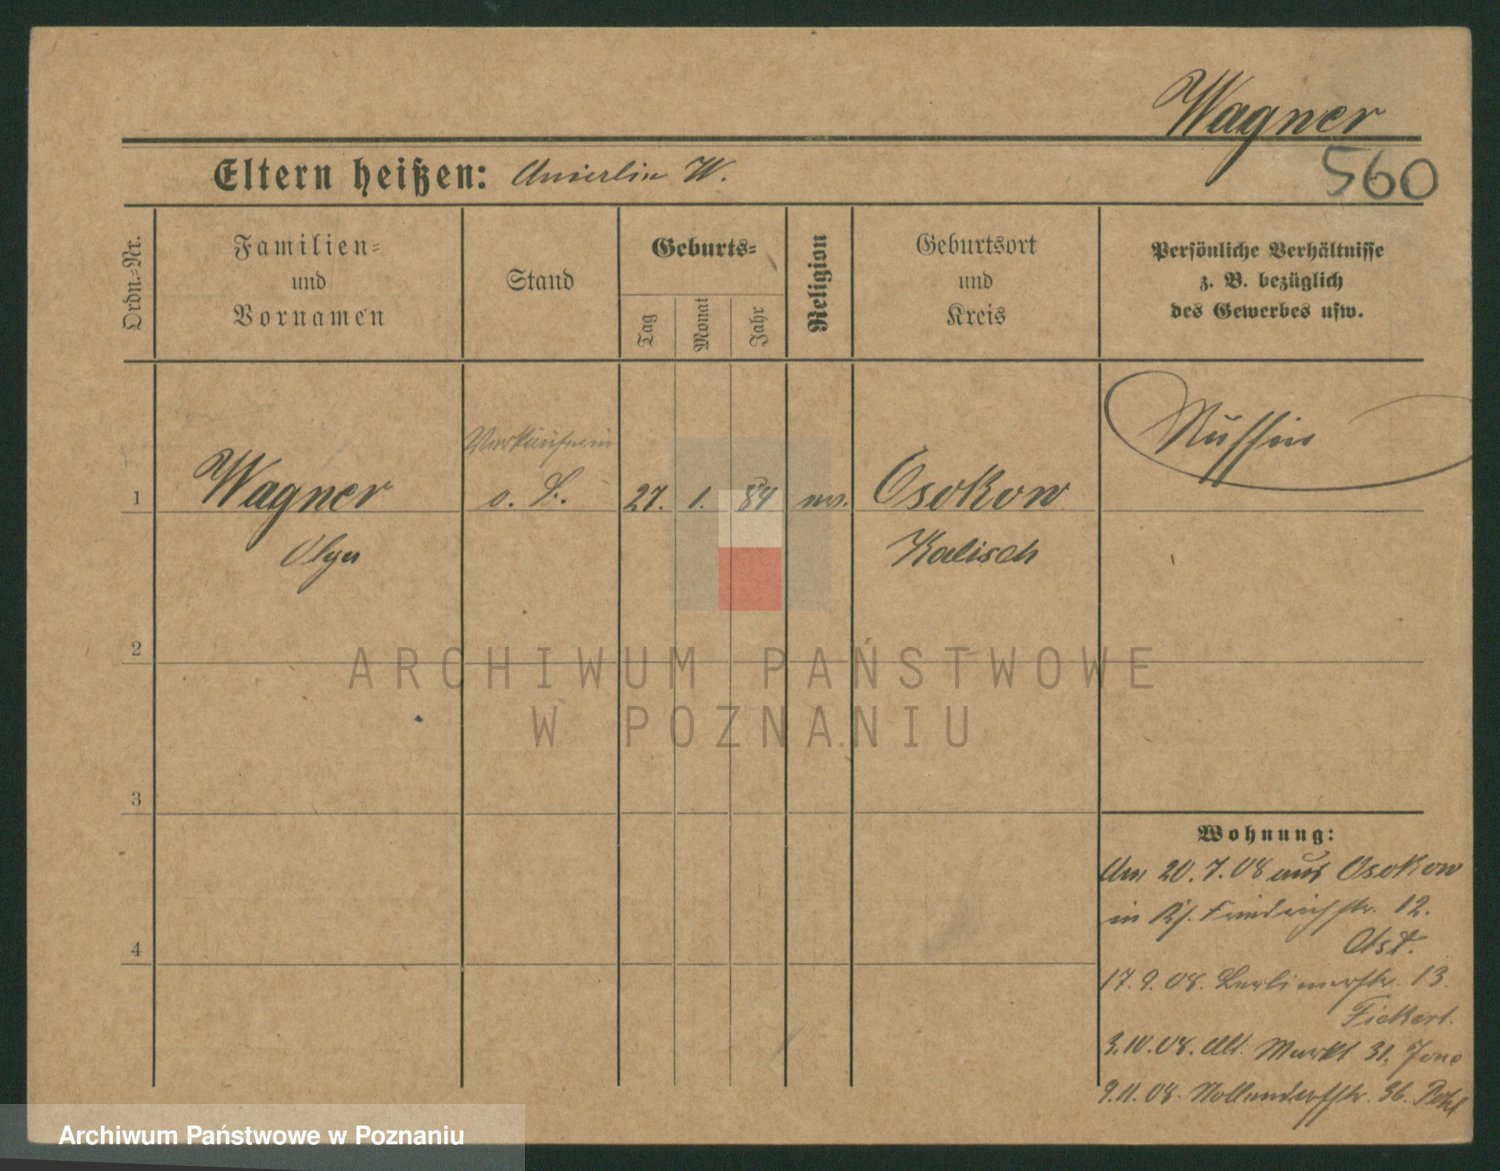 Wagner
560
Eltern heißen: W.
Ordn.-Nr.
Familien-
und
Vornamen
Stand
Geburts-
Tag
Monat
Jahr
Religion
Geburtsort
und
Kreis
Persönliche Verhältnisse
z. B. bezüglich
des Gewerbes usw.
Verkäuferin
1 Wagner o. B. 27. 1. 84 ev. Osokow
Olga Kalisch
2
ARCHIWUM PAŃSTWOWE
W POZNANIU
3
Wohnung:
Am 20.7.08 aus Osokow
in Friedrichstr. 12.
4
17.9.08. Berlinerstr. 13.
Fiekert.
3.10.08. Alt. Markt 31.
9.11.08. Nollendorfstr. 36.
Archiwum Państwowe w Poznaniu